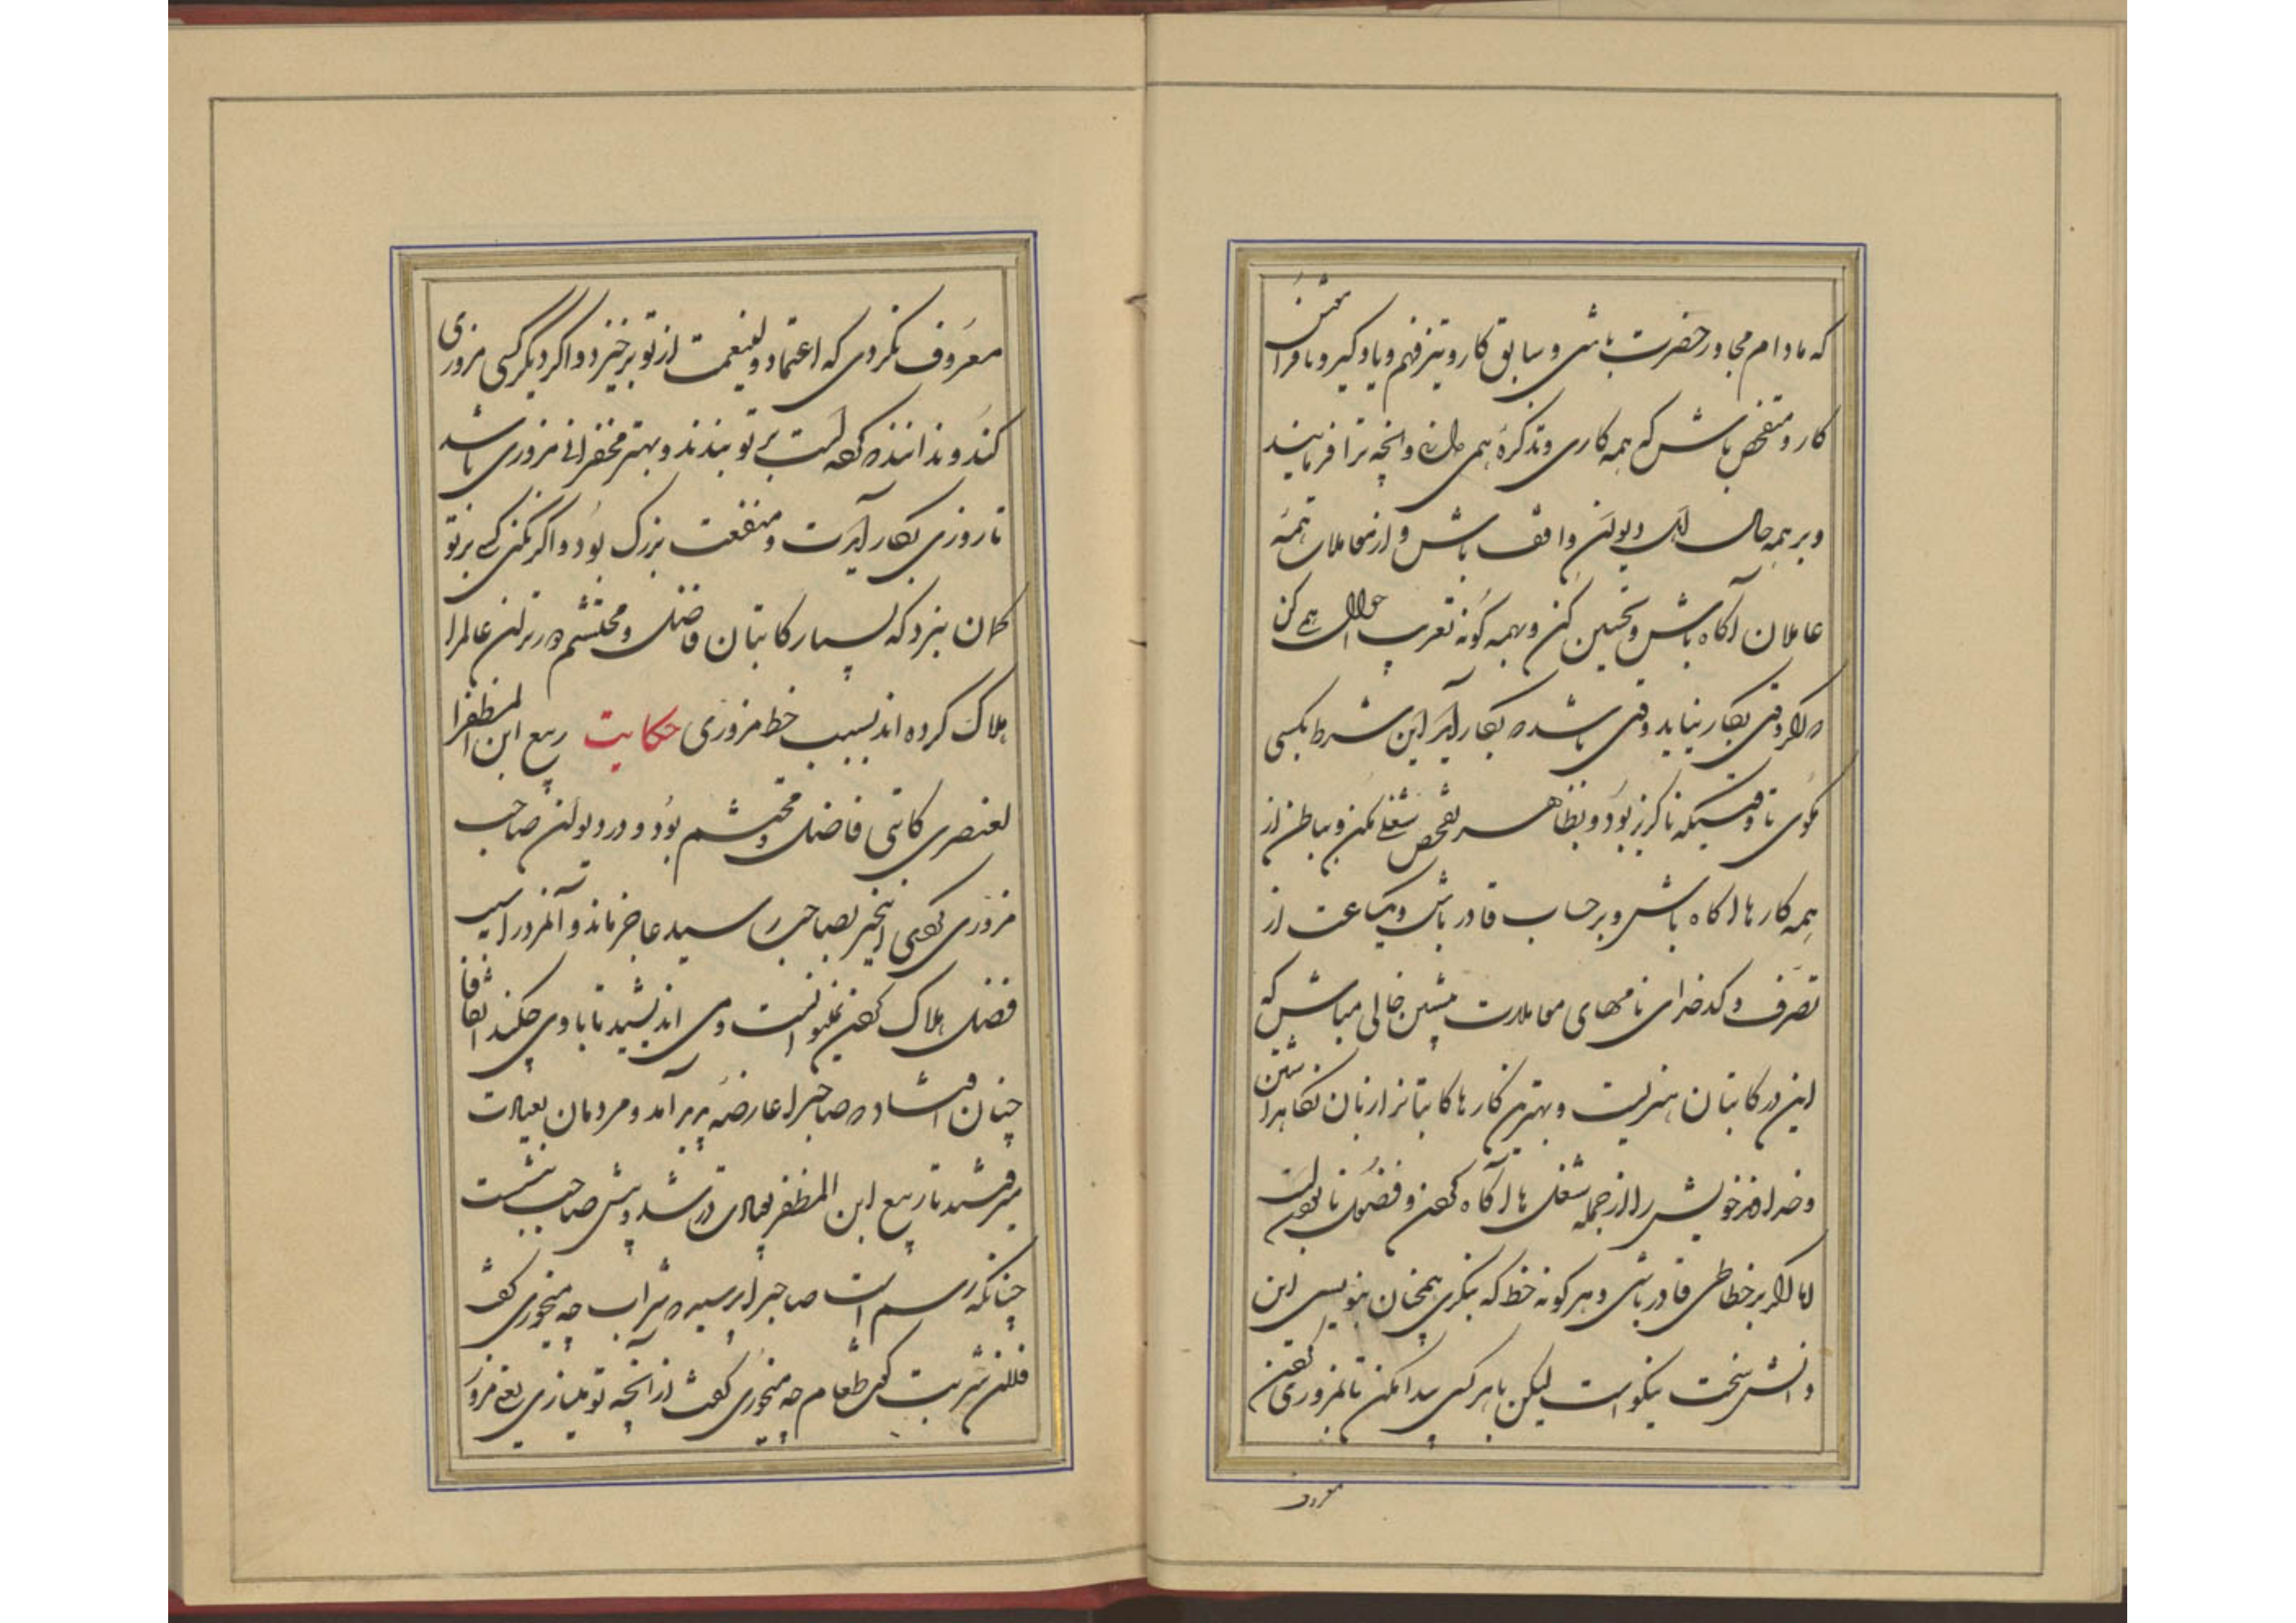 که مادام مجاور حضرت باشی و سابق کار و تیز فهم و یادگیر و نافرامشتن
کار و متفحص باش که همه کاری و تذکره همی دار و انچه ترا فرمایند
و بر همه حال اهل دیوان واقف باش و از معاملان همه
عاملان آکاه باش و تجسس کن و بهمه کونه تعرف احوال همی کن
که اکر وقتی بکار نیاید وقتی باشد که بکار آید این شرط بکسی
مکوی تا وقتیکه ناکزیر بود و بظاهر تفحص شغلی مکن و بباطن از
همه کارها اکاه باش و بر حساب قادر باش و یکساعت از
تصرف و کدخدای نامهای معاملات پیشین خالی مباش که
این در کاتبان هنریست و بهترین کارها کاتبانرا زبان نکاهداشتن
و خداوند خویش را از جمله شغل ها آکاه کردن و فضول نابودنست
اما اکر بر خطاطی قادر باشی و هر کونه خط که بنکری همچنان بنویسی این
دانش سخت نیکو است لیکن با هر کسی پیدا مکن تا بمزوری کردن
معروف
معروف نکردی که اعتماد ولینعمت از تو برخیزد و اکر دیکر کسی مزوری
کند و ندانند که کرده است بر تو بندند و بهتر محقراتی مزوری باشد
تا روزی بکار آیدت و منفعت بزرک بود و اکر بکنی کسی بر تو
کمان نبرد که بسیار کاتبان فاضل و محتشم وزیران عالم را
هلاک کرده اند بسبب خط مزوری حکایت ربیع ابن المظفر
العنصری کاتبی فاضل و محتشم بود و در دیوان صاحب
مزوری کردی این خبر بصاحب رسید عاجز ماند و آنمرد را سبب
فضل هلاک کردن نمیتوانست و می اندیشید تا با وی چکند اتفاقا
چنان افتاد که صاحب را عارضه پدید آمد و مردمان بعیادت
میرفتند تا ربیع ابن المظفر بعیادت در شد و پیش صاحب بنشست
چنانکه رسم است صاحب را پرسید که شراب چه میخوری کفت
فلان شربت کفت طعام چه میخوری کفت از آنچه تو میسازی یعنی مزور